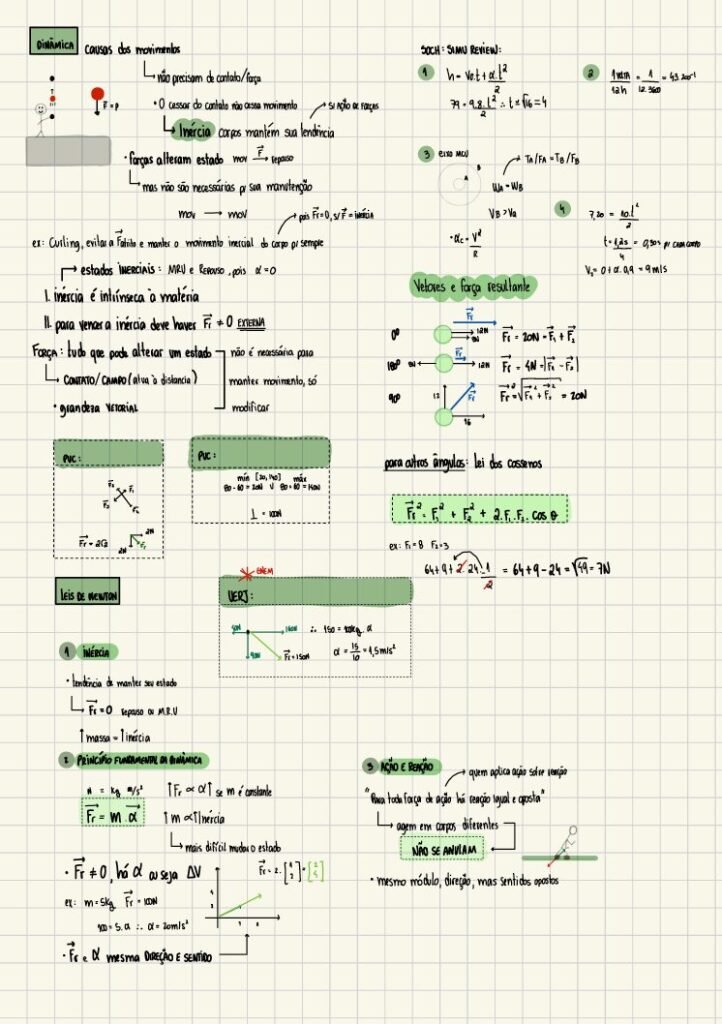 DINÂMICA causas dos movimentos
não precisam de contato/força
F = P
• O cessar do contato não cessa movimento
s/ AÇÃO DE FORÇAS
Inércia corpos mantém sua tendência
• forças alteram estado mov F repouso
mas não são necessárias p/ sua manutenção
mov → mov
pois Fr=0, s/ F = inércia
ex: Curling, evitar a Fatrito e manter o movimento inercial do corpo p/ sempre
estados INERCIAIS: MRU e Repouso, pois a=0
I. inércia é intrínseca à matéria
II. para vencer a inércia deve haver Fr ≠ 0 EXTERNA
FORÇA: tudo que pode alterar um estado
CONTATO/CAMPO (atua à distancia)
• grandeza VETORIAL
não é necessária para
manter movimento, só
modificar
PUC:
F3 F1
F2
Fr = 2√2
2N
2N Fr
PUC:
min [20,140] máx
80-60=20N V 80+60=140N
⊥ = 100N
LEIS DE NEWTON
ENEM
UERJ:
160N
90N
Fr=150N
a = 15/10 = 1,5m/s²
1 INÉRCIA
• tendência de manter seu estado
Fr=0 repouso ou M.R.U
↑massa = ↑inércia
2 PRINCÍPIO FUNDAMENTAL DA DINÂMICA
N = kg m/s²
Fr = m.a
↑Fr ∝ a↑ se m é constante
↑m ∝ ↑Inércia
mais difícil mudar o estado
• Fr ≠ 0, há a ou seja ΔV
ex: m=5kg Fr=100N
100 = 5.a ∴ a=20m/s²
• Fr e a mesma DIREÇÃO E SENTIDO
SOCH: SIMU REVIEW:
1 h = Vo.t + a.t²/2
79 = 9,8.t²/2 ∴ t=√16=4
2 1 VOLTA/12h = 1/12.3600
3 EIXO MCU
A B
TA/FA = TB/FB
WA = WB
VB > VA
• ac = V²/R
4 7,20 = 10.t²/2
Vetores e força resultante
0° Fr 12N 8N Fr = 20N = F1 + F2
180° 8N Fr 12N Fr = 4N = |F1 - F2|
90° 12 Fr 16 Fr = √F1² + F2² = 20N
para outros ângulos: lei dos cossenos
Fr² = F1² + F2² + 2.F1.F2. cos θ
ex: F1=8 F2=3
64+9+2.24.-1/2 = 64+9-24 = √49 = 7N
3 AÇÃO E REAÇÃO
quem aplica ação sofre reação
"Para toda força de ação há reação igual e oposta"
agem em corpos diferentes
NÃO SE ANULAM
• mesmo módulo, direção, mas sentidos opostos